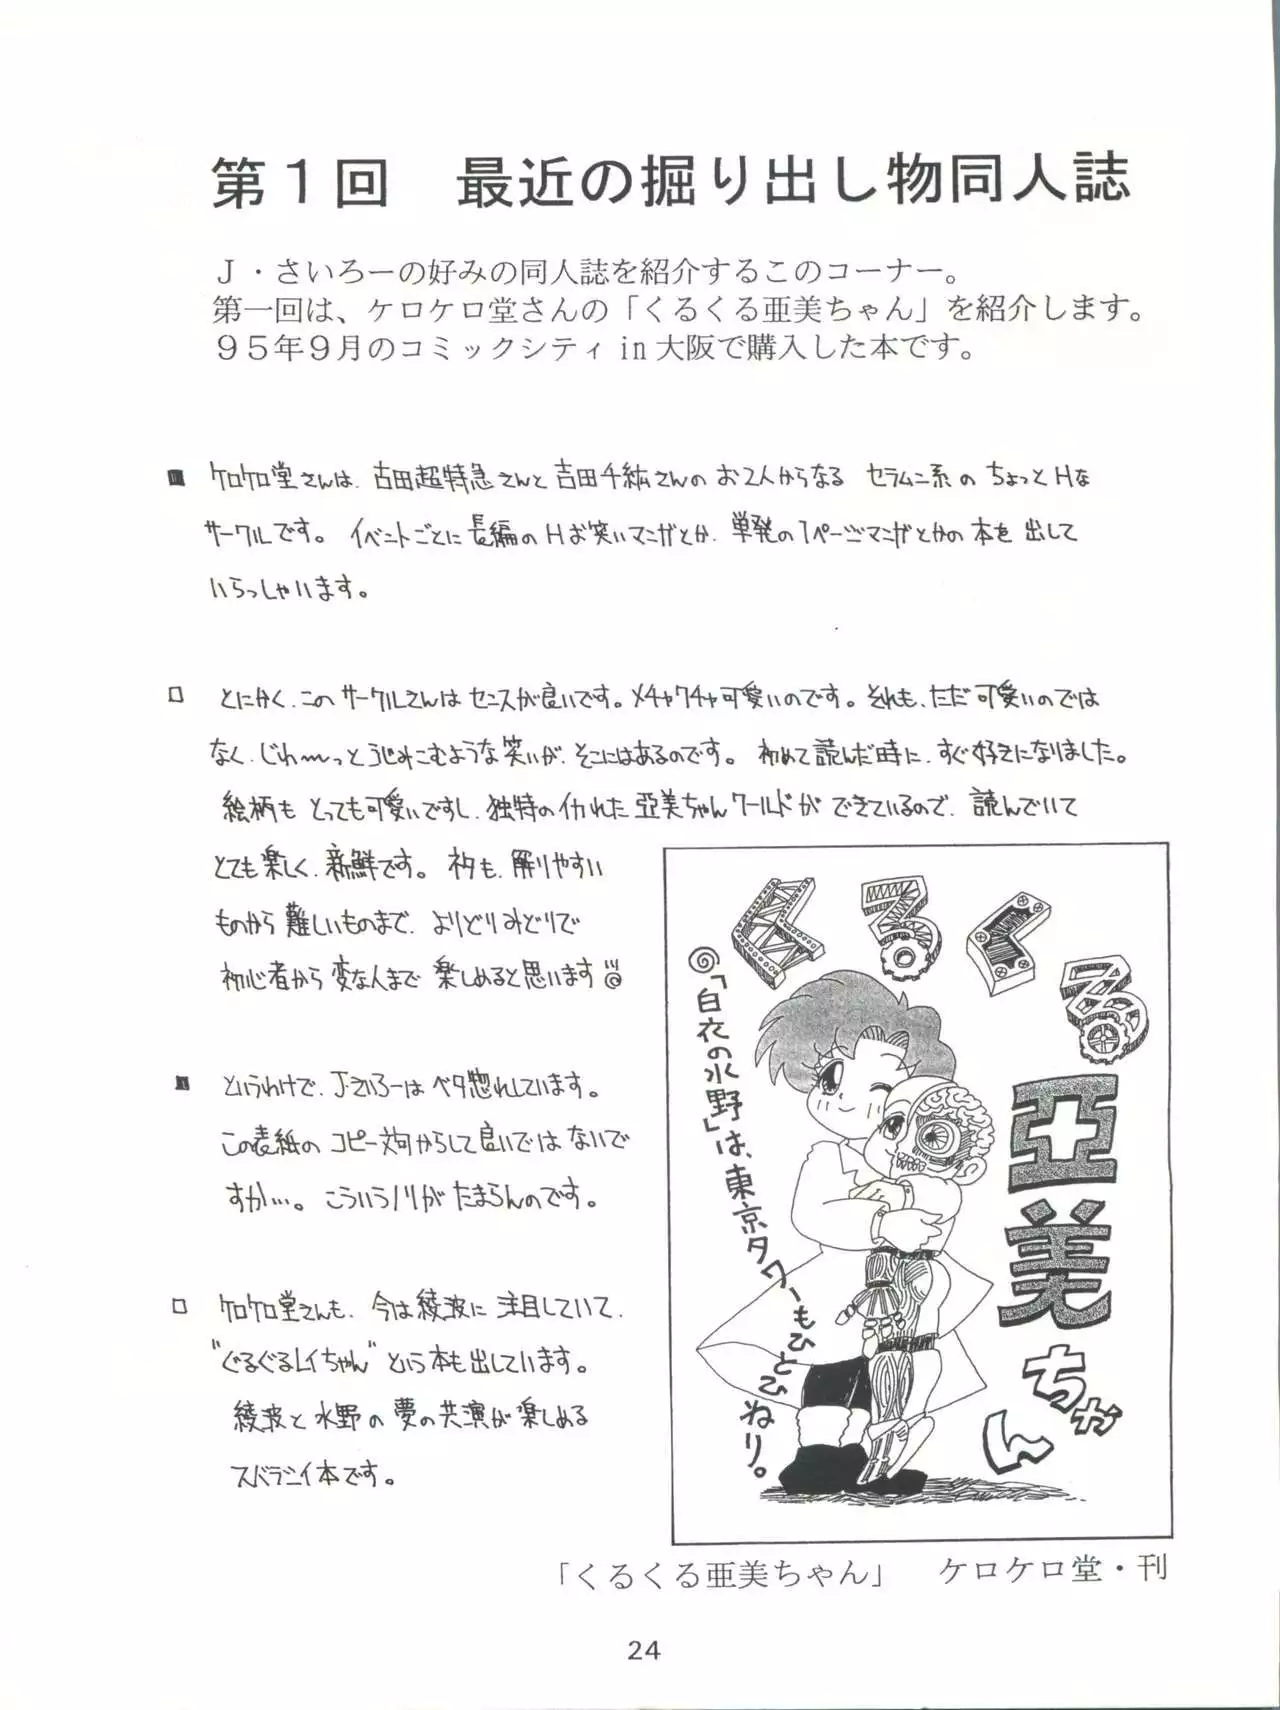 第１回　最近の掘り出し物同人誌
Ｊ・さいろーの好みの同人誌を紹介するこのコーナー。
第一回は、ケロケロ堂さんの「くるくる亜美ちゃん」を紹介します。
９５年９月のコミックシティin大阪で購入した本です。
■ ケロケロ堂さんは、古田超特急さんと吉田千紘さんのお2人からなる セラムン系の ちょっとHな
サークルです。イベントごとに長編のHお笑いマンガとか、単発の1ページマンガとかの本を出して
いらっしゃいます。
□ とにかく、このサークルさんはセンスが良いです。メチャクチャ可愛いのです。それも、ただ可愛いのでは
なく、じわ〜っとうじみこむような笑いが、そこにはあるのです。初めて読んだ時に、すぐ好きになりました。
絵柄もとっても可愛いですし、独特のイカれた亜美ちゃんワールドができているので、読んでいて
とても楽しく、新鮮です。ネタも、解りやすい
ものから難しいものまで、よりどりみどりで
初心者から変な人まで楽しめると思います
■ というわけで、Jさいろーはベタ惚れしています。
この表紙のコピー文句からして良いではないで
すか…。こういうノリがたまらんのです。
□ ケロケロ堂さんも、今は綾波に注目していて、
"ぐるぐるレイちゃん"という本も出しています。
綾波と水野の夢の共演が楽しめる
スバラシイ本です。
くるくる
亞美ちゃん
◎「白衣の水野」は、東京タワーもひとひねり。
「くるくる亜美ちゃん」　ケロケロ堂・刊
24